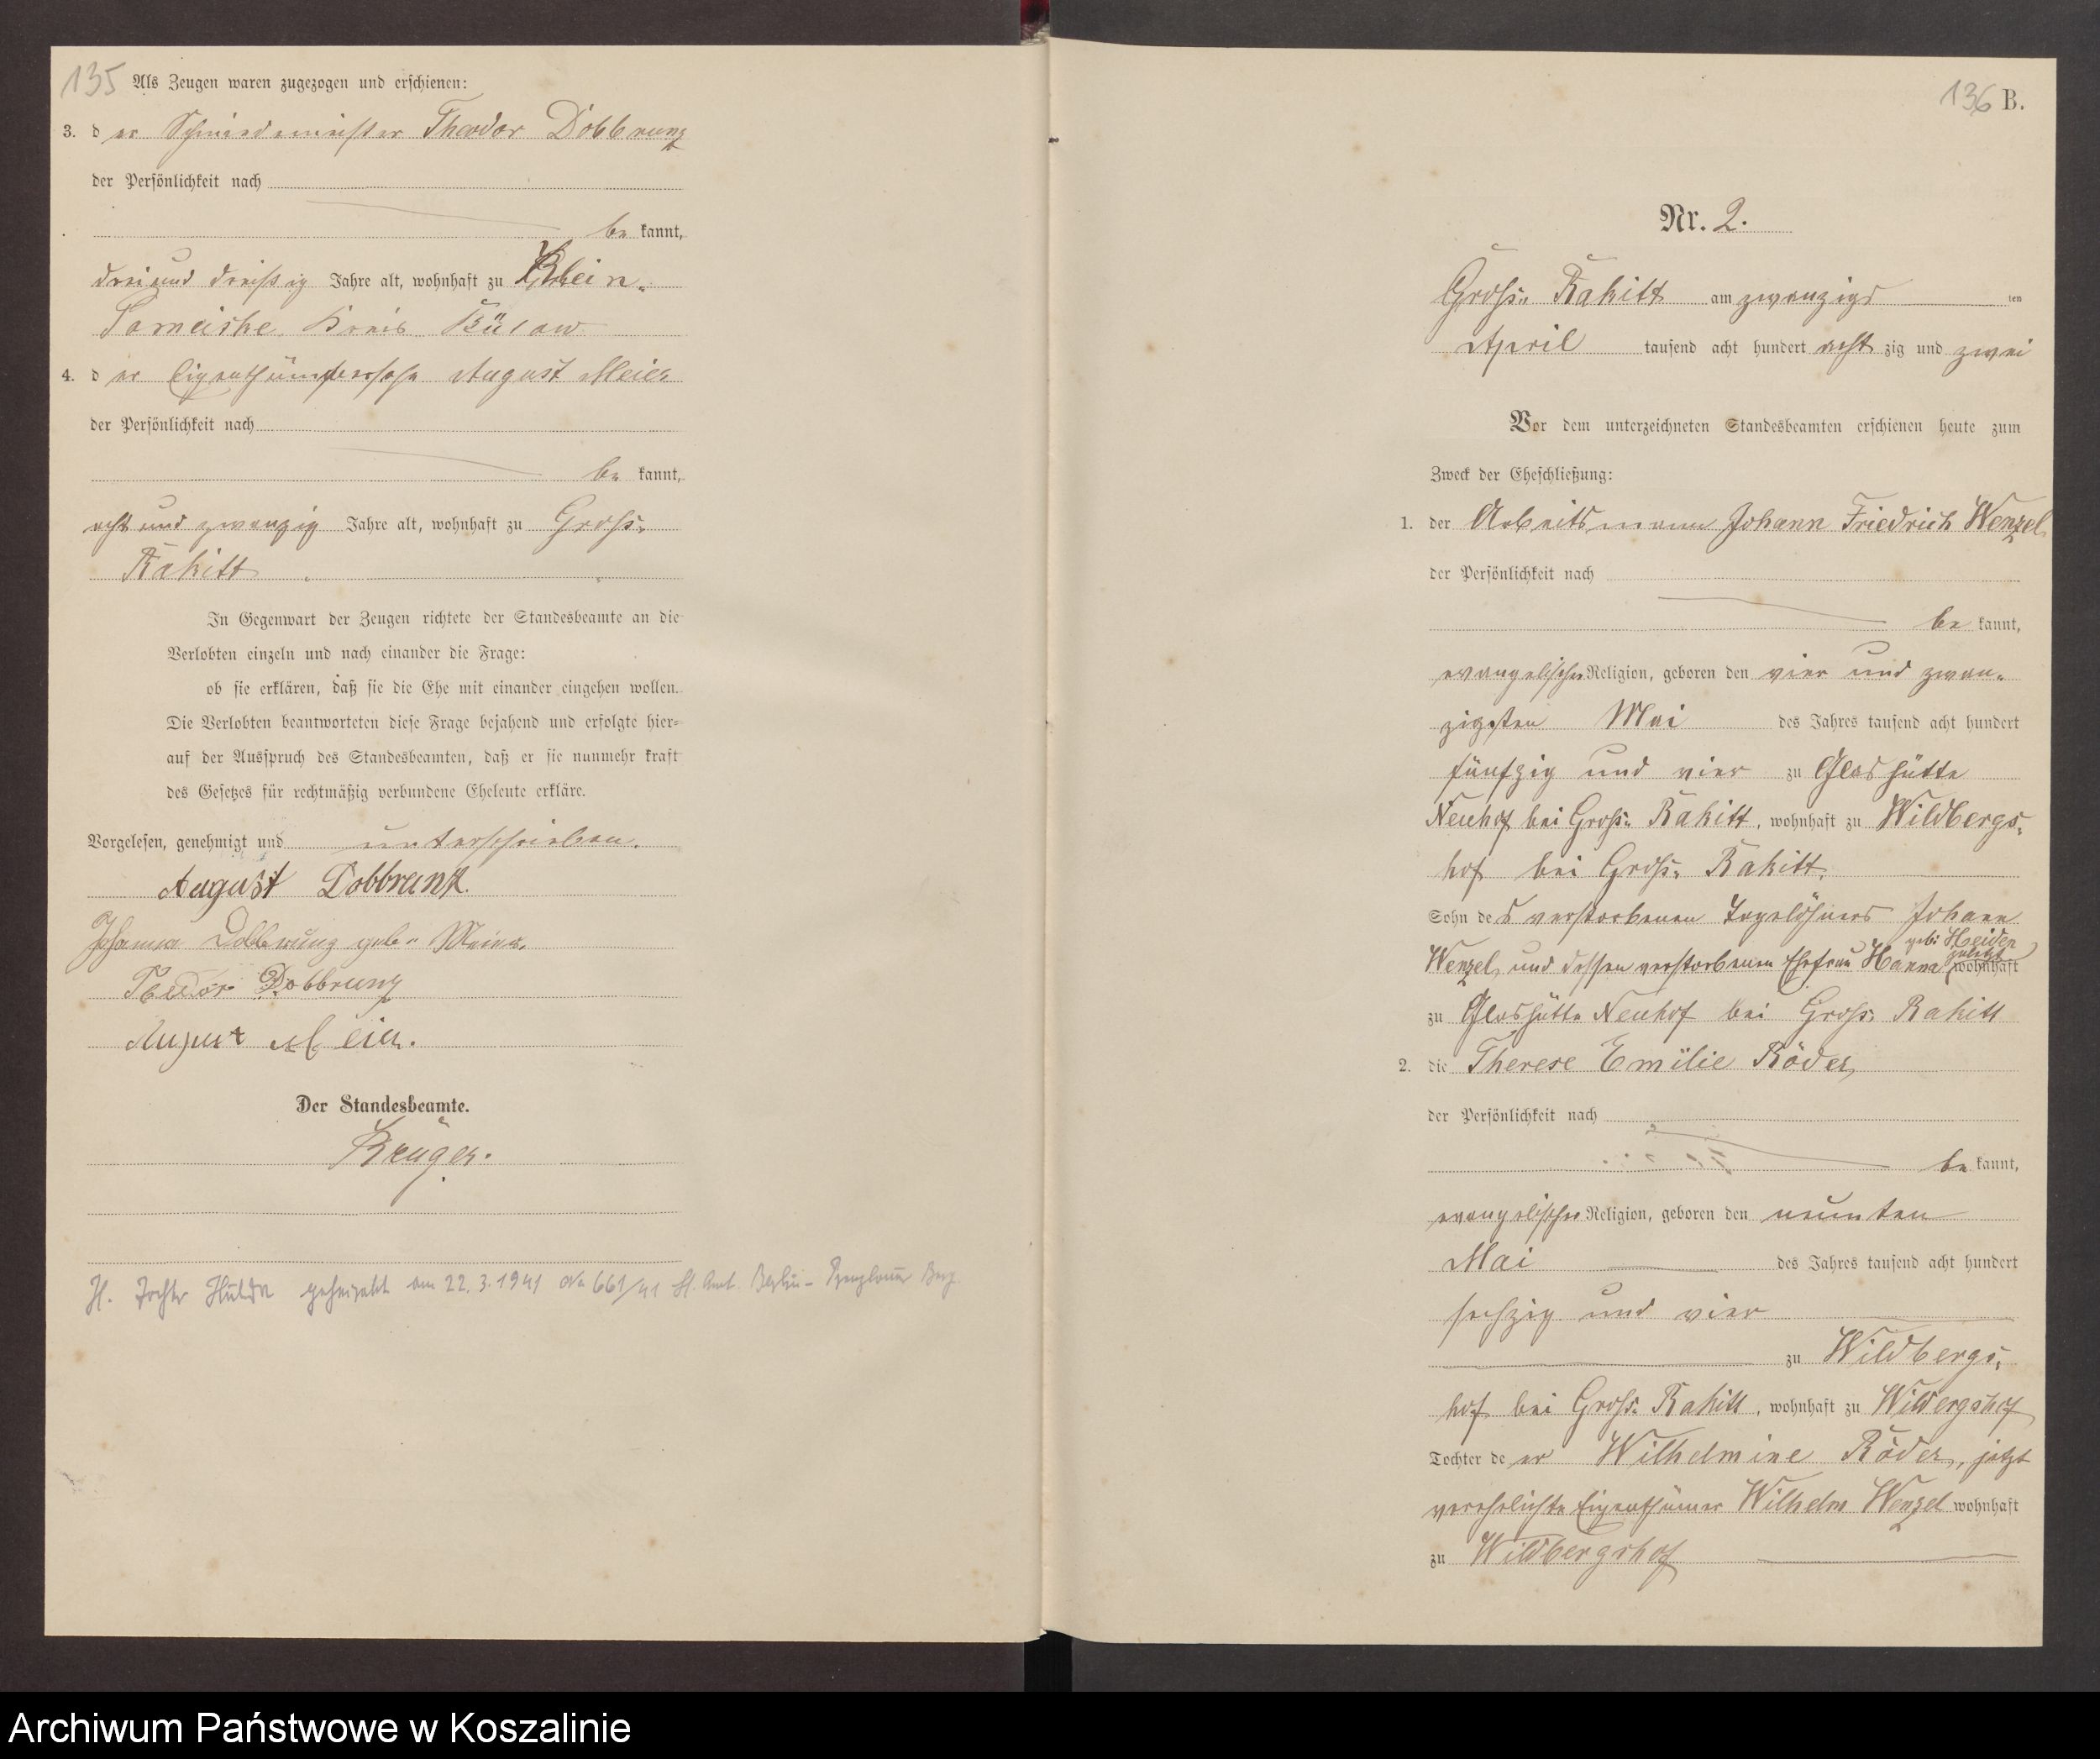 135 Als Zeugen waren zugezogen und erschienen:
3. der Schmiedemeister Theodor Dobbrunz
der Persönlichkeit nach
be kannt,
dreiund dreißig Jahre alt, wohnhaft zu Klein-
Pomeiske, Kreis Bütow
4. der Eigenthümersohn August Meier
der Persönlichkeit nach
be kannt,
acht und zwanzig Jahre alt, wohnhaft zu Groß-
Rakitt
In Gegenwart der Zeugen richtete der Standesbeamte an die
Verlobten einzeln und nach einander die Frage:
ob sie erklären, daß sie die Ehe mit einander eingehen wollen.
Die Verlobten beantworteten diese Frage bejahend und erfolgte hier-
auf der Ausspruch des Standesbeamten, daß er sie nunmehr kraft
des Gesetzes für rechtmäßig verbundene Eheleute erkläre.
Vorgelesen, genehmigt und unterschrieben.
August Dobbrunz.
Johanna Dobbrunz geb. Meier.
Theodor Dobbrunz
August Meier.
Der Standesbeamte.
Krüger.
Tochter Hulda geheiratet am 22.3.1941 No 661/41 St. Amt. Berlin- Prenzlauer Berg.
136 B.
Nr. 2.
Groß- Rakitt am zwanzigs ten
April tausend acht hundert acht zig und zwei
Vor dem unterzeichneten Standesbeamten erschienen heute zum
Zweck der Eheschließung:
1. der Arbeitsmann Johann Friedrich Wenzel,
der Persönlichkeit nach
be kannt,
evangelischer Religion, geboren den vier und zwan-
zigsten Mai des Jahres tausend acht hundert
fünfzig und vier zu Glashütte
Neuhof bei Groß- Rakitt, wohnhaft zu Wildbergs-
hof bei Groß- Rakitt,
Sohn des verstorbenen Tagelöhners Johann
geb: Heider
Wenzel, und dessen verstorbenen Ehefrau Hanna zuletzt wohnhaft
zu Glashütte Neuhof bei Groß- Rakitt
2. die Therese Emilie Röder,
der Persönlichkeit nach
be kannt,
evangelischer Religion, geboren den neunten
Mai des Jahres tausend acht hundert
sechzig und vier
zu Wildbergs-
hof bei Groß- Rakitt, wohnhaft zu Wildbergshof
Tochter de er Wilhelmine Röder, jetzt
verehelichte Eigenthümer Wilhelm Wenzel wohnhaft
zu Wildbergshof
Archiwum Państwowe w Koszalinie